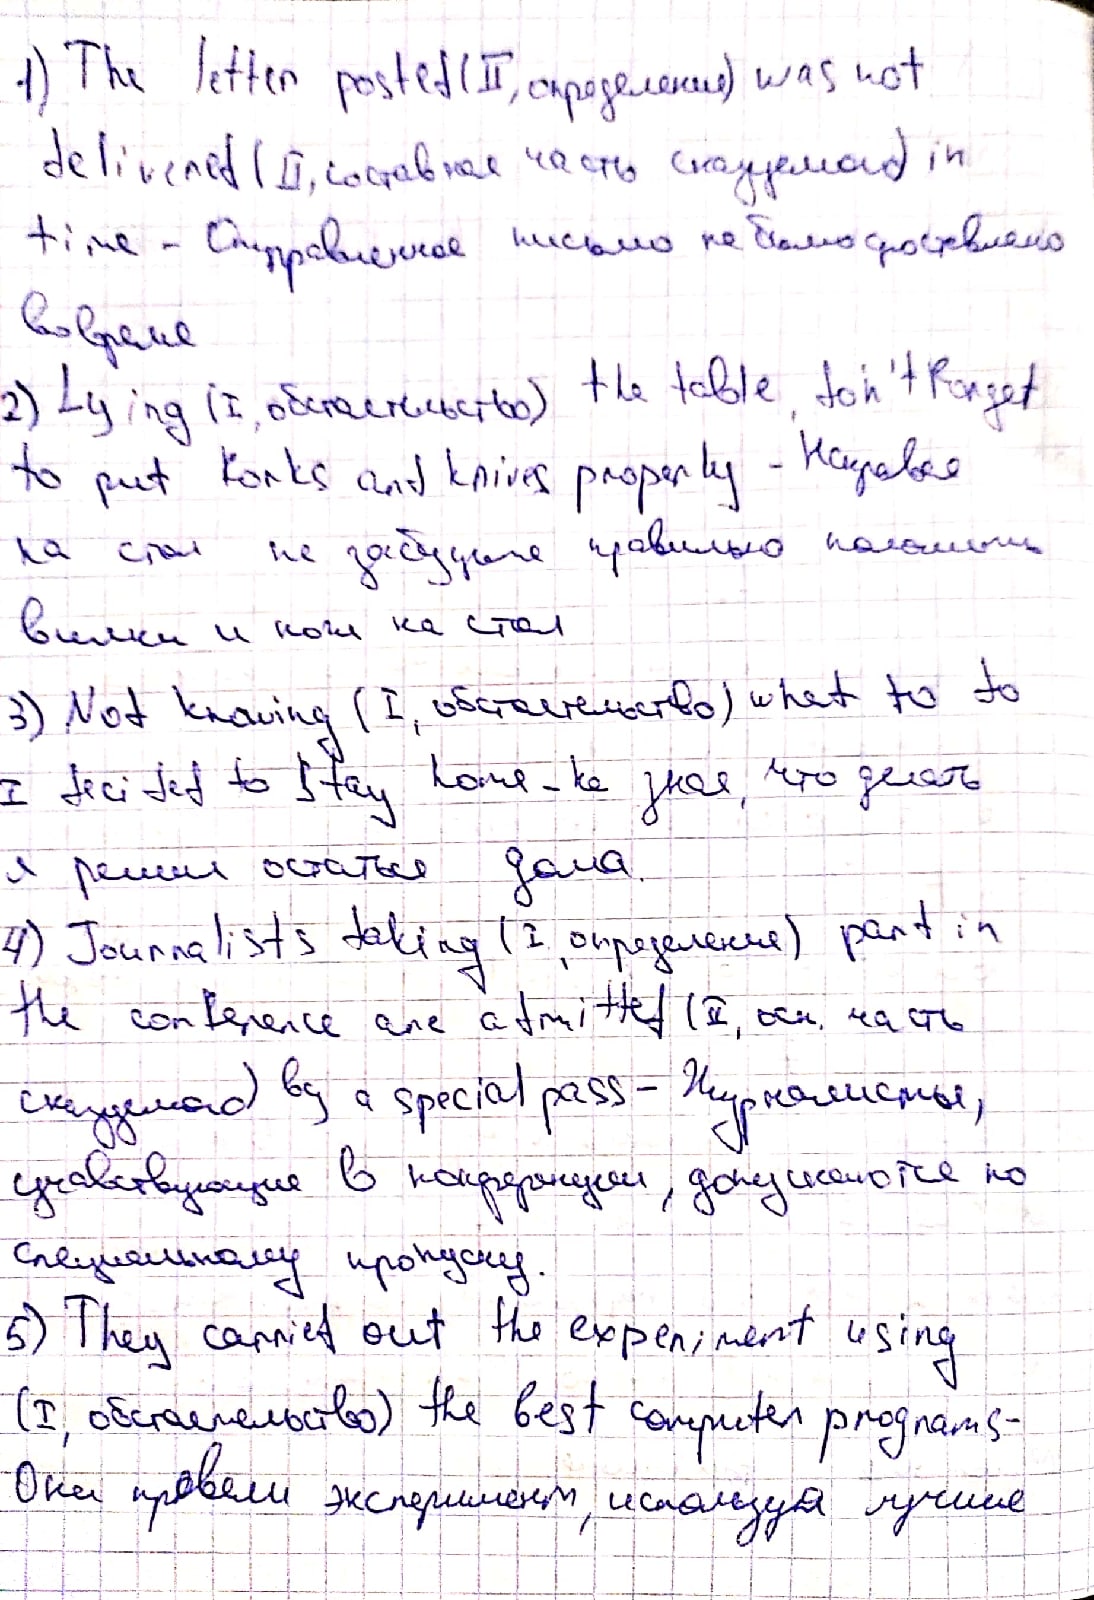 1) The letter posted (II, определение) was not
delivered (II, составная часть сказуемого) in
time - Отправленное письмо не было доставлено
вовремя
2) Lying (I, обстоятельство) the table, don't forget
to put forks and knives properly - Накрывая
на стол не забудьте правильно положить
вилки и ножи на стол
3) Not knowing (I, обстоятельство) what to do
I decided to stay home - не зная, что делать
я решил остаться дома.
4) Journalists taking (I, определение) part in
the conference are admitted (II, осн. часть
сказуемого) by a special pass - Журналисты,
учавствующие в конференции, допускаются по
специальному пропуску.
5) They carried out the experiment using
(I, обстоятельство) the best computer programs-
Они провели эксперимент, используя лучшие